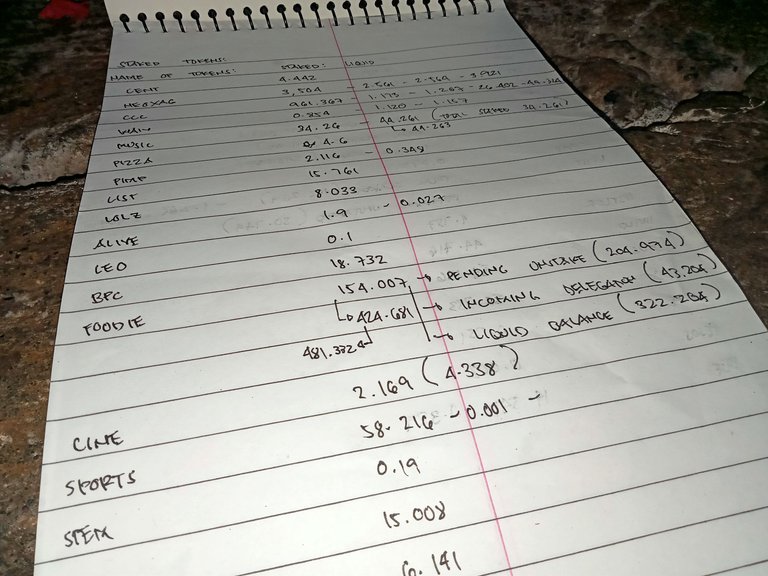 STAKED TOKENS:
NAME OF TOKENS: STAKED: LIQUID
CENT 4.442
NEOXAG 3,504 - 2.561 - 2.564 - 3.921
CCC 961.367 - 1.173 - 1.287 - 26.402 - 44.314
0.854 - 1.120 - 1.157
MUSIC 34.26 - 44.261 (TOTAL STAKED 34.261)
↳ 44.263
PIZZA 4.6
PIMP 2.116 - 0.349
LIST 15.761
LOLZ 8.033
ALIVE 1.9 - 0.027
LEO 0.1
BPC 18.732
FOODIE 154.007 → PENDING UNSTAKE (204.974)
↳ 424.681 → INCOMING DELEGATION (43.204)
481.332 → LIQUID BALANCE (322.204)
2.169 (4.338)
CINE 58.216 - 0.001 -
SPORTS 0.19
STEM 15.008
6.141